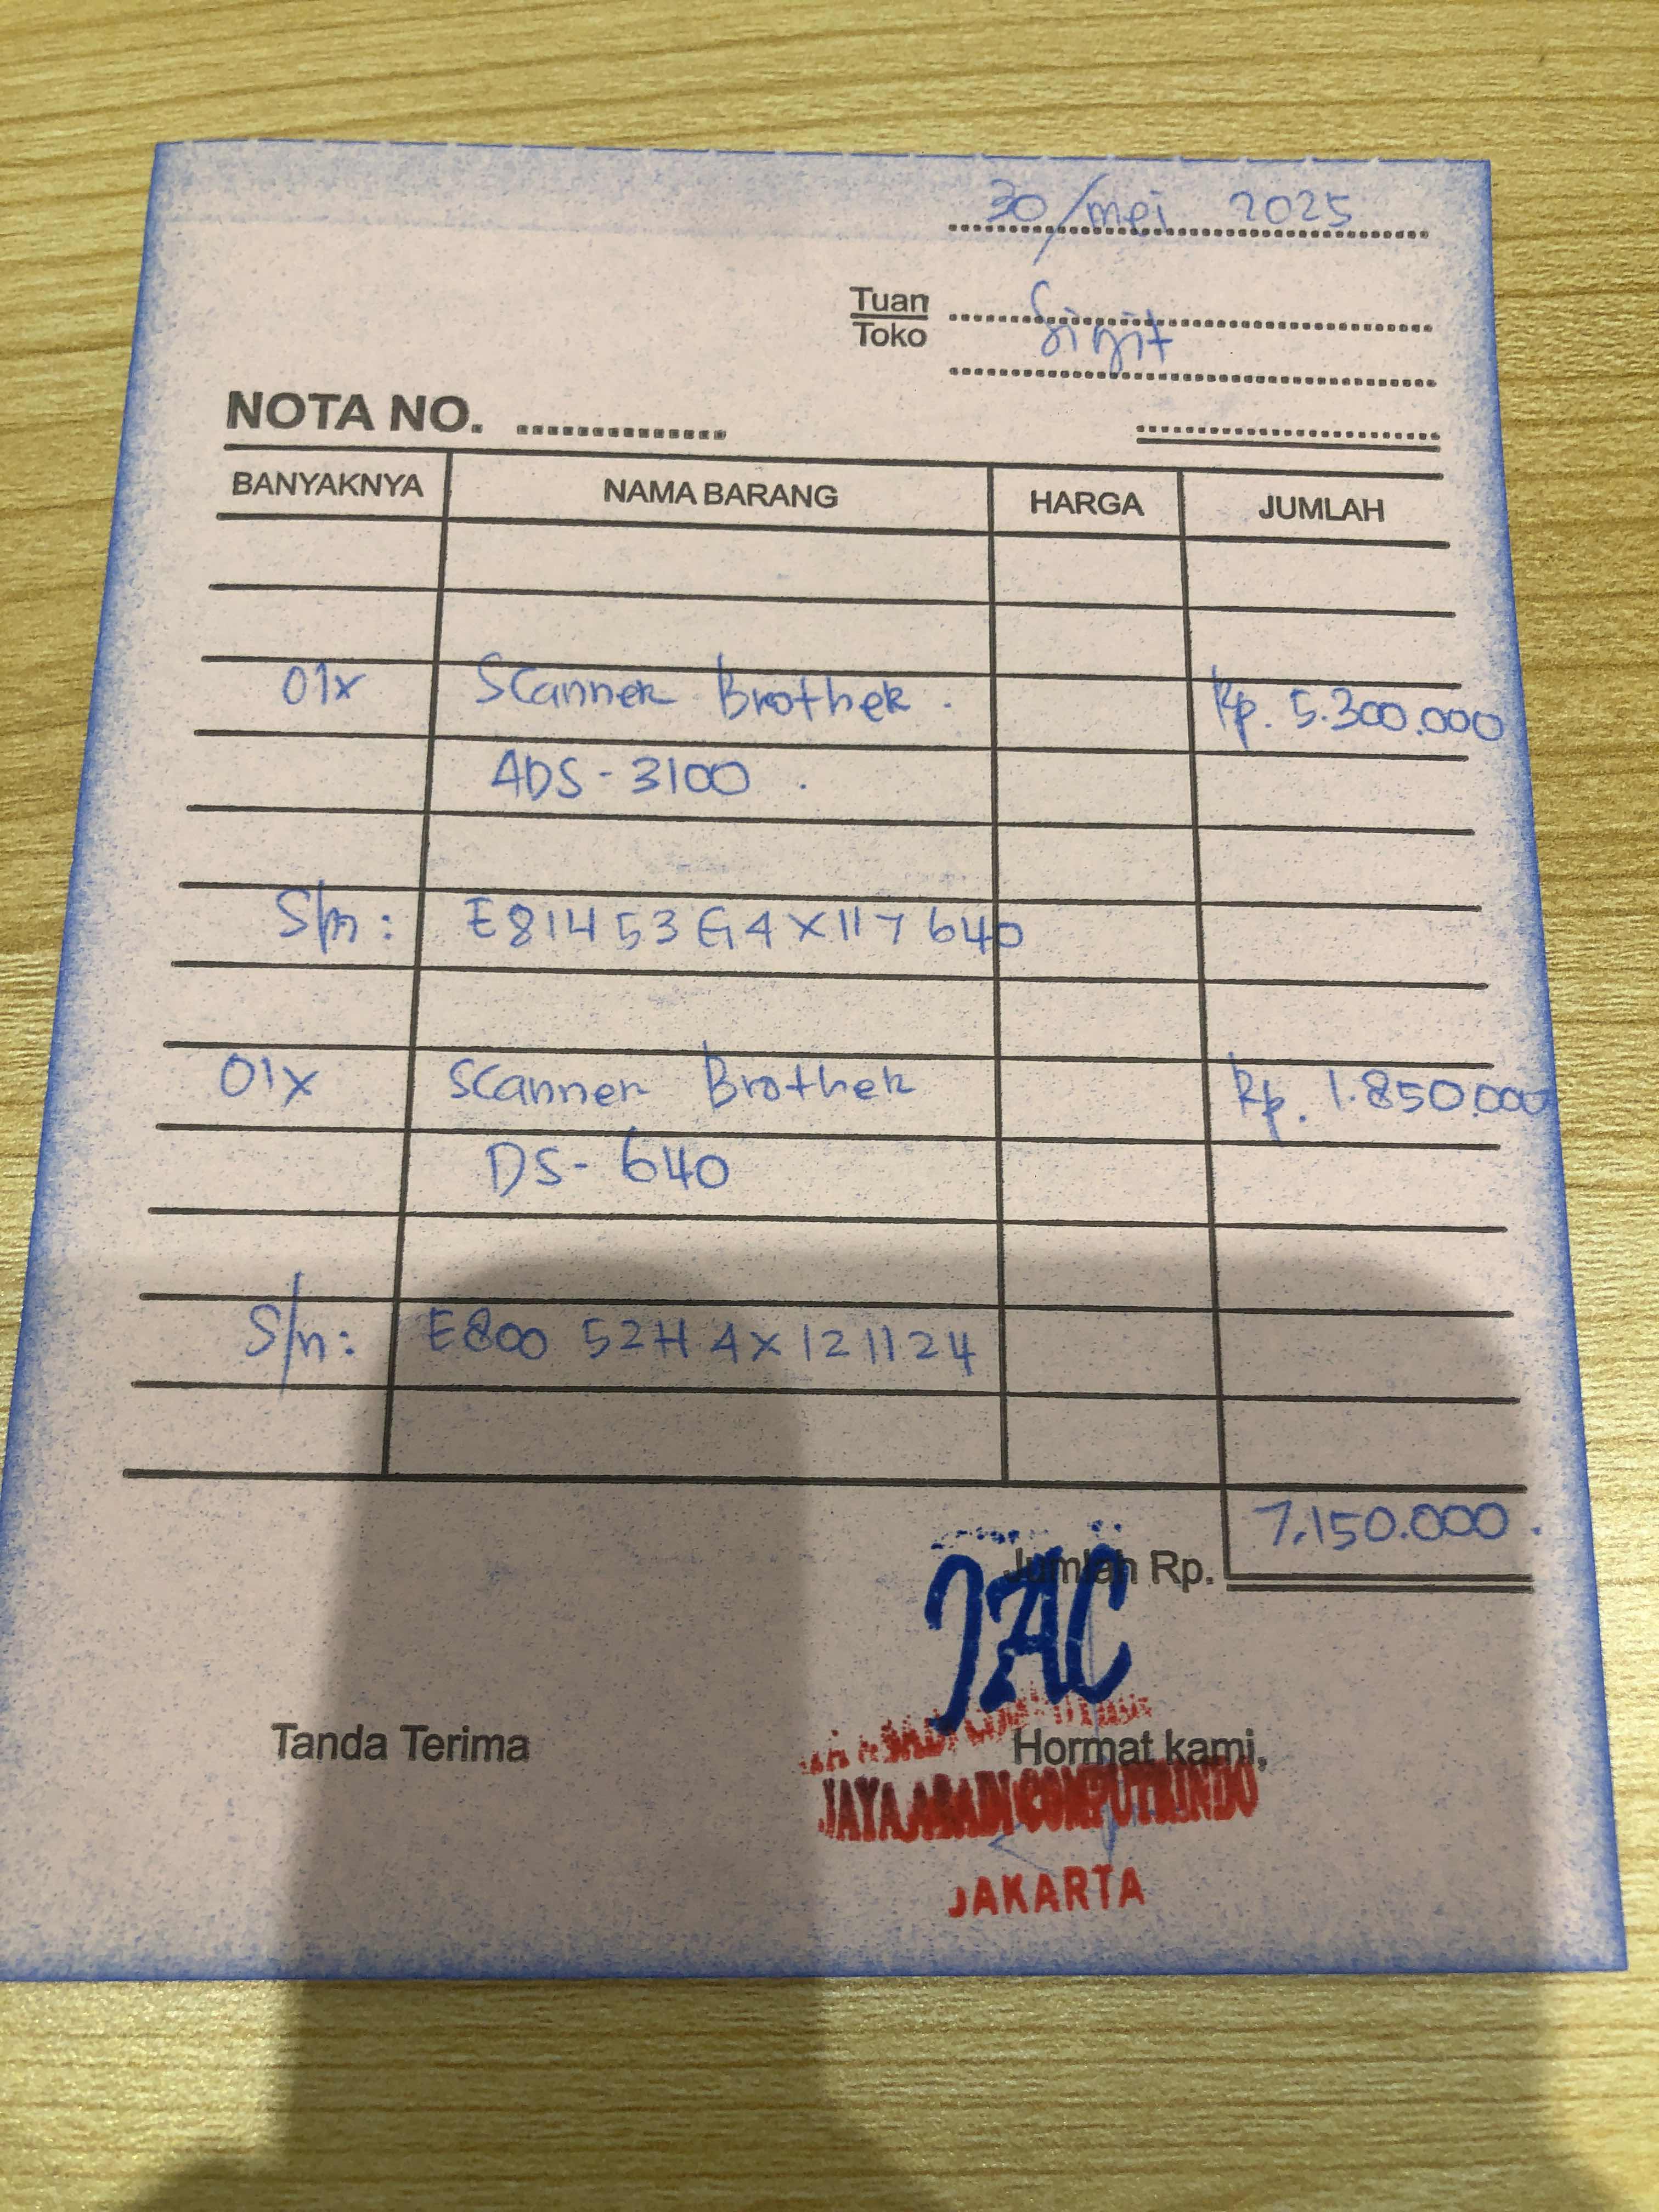 30/mei 2025
Tuan
Toko
Sigit
NOTA NO. ..............
BANYAKNYA NAMA BARANG HARGA JUMLAH
01x Scanner Brother. Rp. 5.300.000
ADS-3100.
S/n: E81453G4X117640
01x Scanner Brother Rp. 1.850.000
DS-640
S/n: E80052H4X121124
Jumlah Rp. 7.150.000.
JAC
Tanda Terima Hormat kami,
JAYA ABADI COMPUTRINDO
JAKARTA